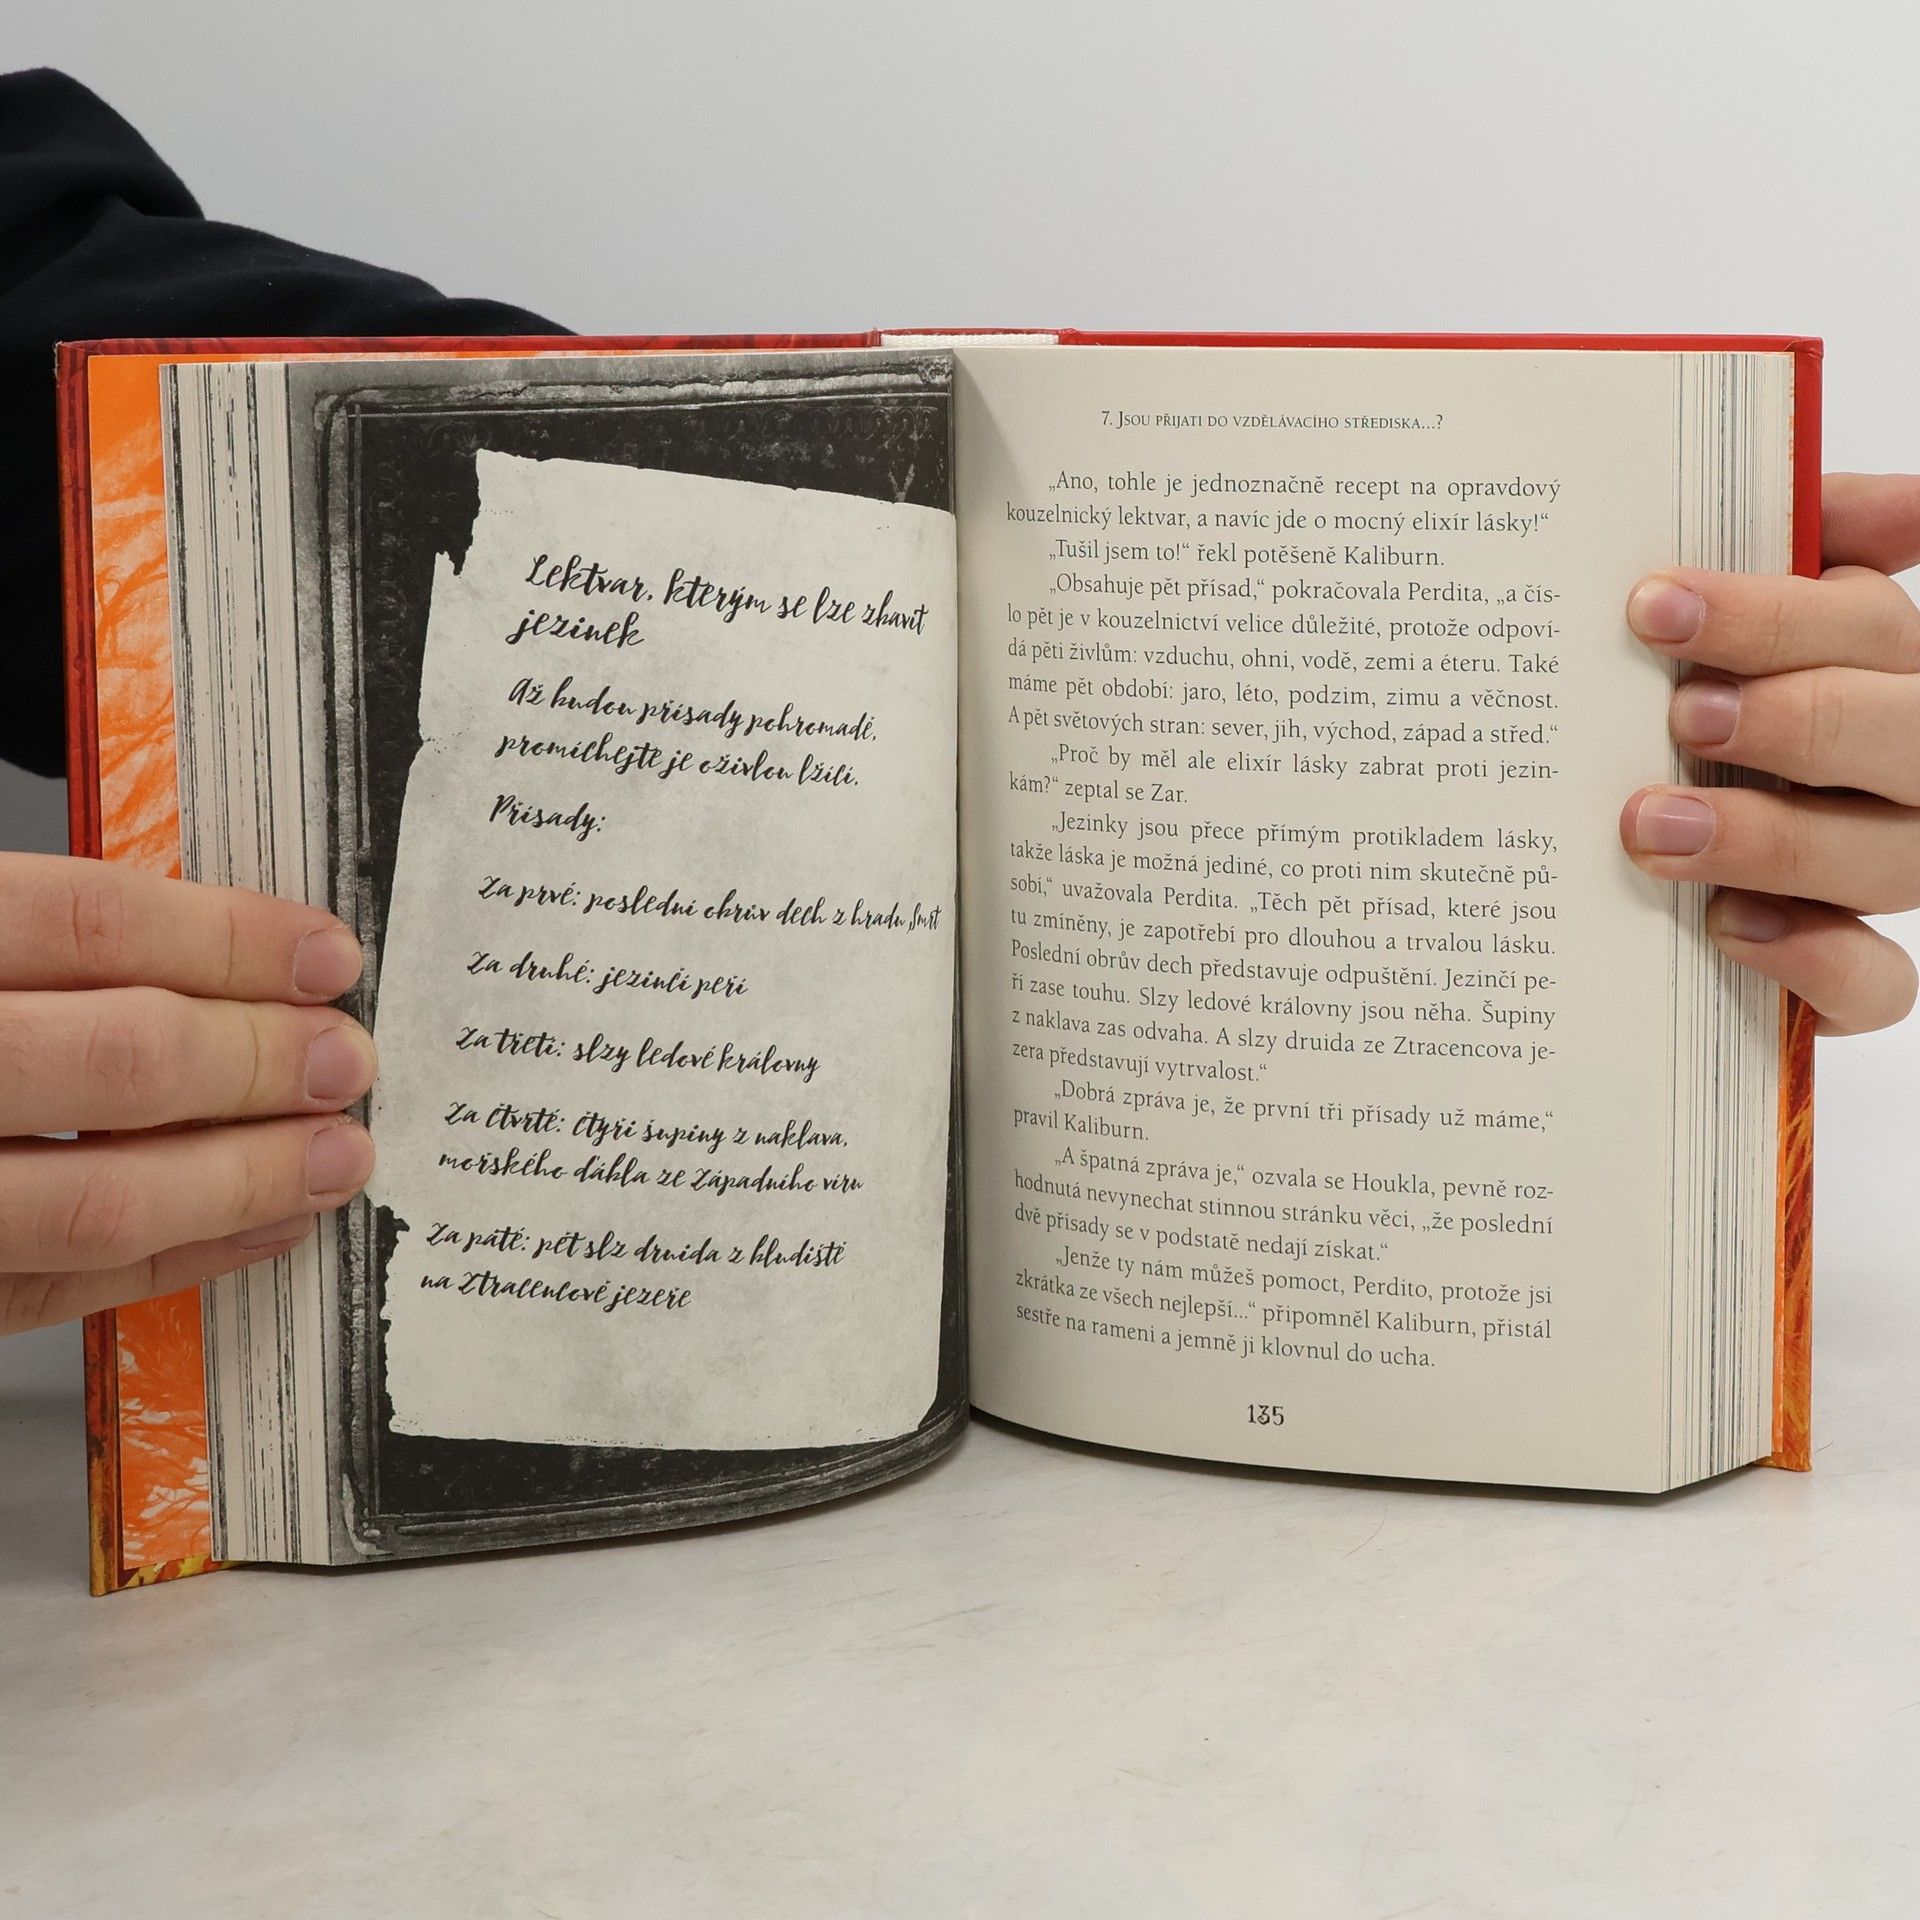 Lektvar, kterým se lze zbavit
jezinek
Až budou přísady pohromadě,
promíchejte je oživlou lžící.
Přísady:
Za prvé: poslední obrův dech z hradu Smrt
Za druhé: jezinčí peří
Za třetí: slzy ledové královny
Za čtvrté: čtyři šupiny z naklava,
mořského ďábla ze Západního víru
Za páté: pět slz druida z bludiště
na Ztracencově jezeře
7. Jsou přijati do vzdělávacího střediska...?
„Ano, tohle je jednoznačně recept na opravdový
kouzelnický lektvar, a navíc jde o mocný elixír lásky!“
„Tušil jsem to!“ řekl potěšeně Kaliburn.
„Obsahuje pět přísad,“ pokračovala Perdita, „a čís-
lo pět je v kouzelnictví velice důležité, protože odpoví-
dá pěti živlům: vzduchu, ohni, vodě, zemi a éteru. Také
máme pět období: jaro, léto, podzim, zimu a věčnost.
A pět světových stran: sever, jih, východ, západ a střed.“
„Proč by měl ale elixír lásky zabrat proti jezin-
kám?“ zeptal se Zar.
„Jezinky jsou přece přímým protikladem lásky,
takže láska je možná jediné, co proti nim skutečně pů-
sobí,“ uvažovala Perdita. „Těch pět přísad, které jsou
tu zmíněny, je zapotřebí pro dlouhou a trvalou lásku.
Poslední obrův dech představuje odpuštění. Jezinčí pe-
ří zase touhu. Slzy ledové královny jsou něha. Šupiny
z naklava zas odvaha. A slzy druida ze Ztracencova je-
zera představují vytrvalost.“
„Dobrá zpráva je, že první tři přísady už máme,“
pravil Kaliburn.
„A špatná zpráva je,“ ozvala se Houkla, pevně roz-
hodnutá nevynechat stinnou stránku věci, „že poslední
dvě přísady se v podstatě nedají získat.“
„Jenže ty nám můžeš pomoct, Perdito, protože jsi
zkrátka ze všech nejlepší...“ připomněl Kaliburn, přistál
sestře na rameni a jemně ji klovnul do ucha.
135